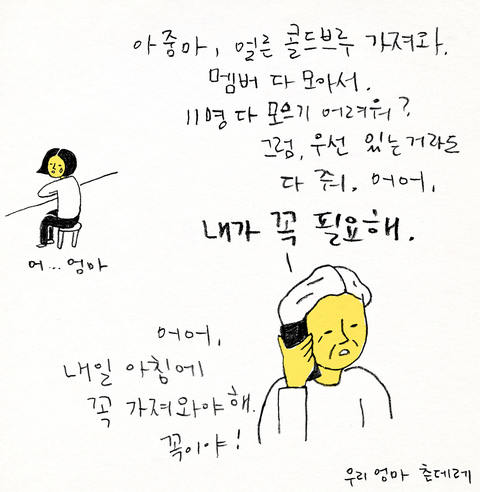 아줌마, 얼른 콜드브루 가져와.
멤버 다 모아서.
11명 다 모으기 어려워?
그럼, 우선 있는거라도
다 줘. 어어,
내가 꼭 필요해.
어... 엄마
어어,
내일 아침에
꼭 가져와야해.
꼭이야!
우리 엄마 츤데레